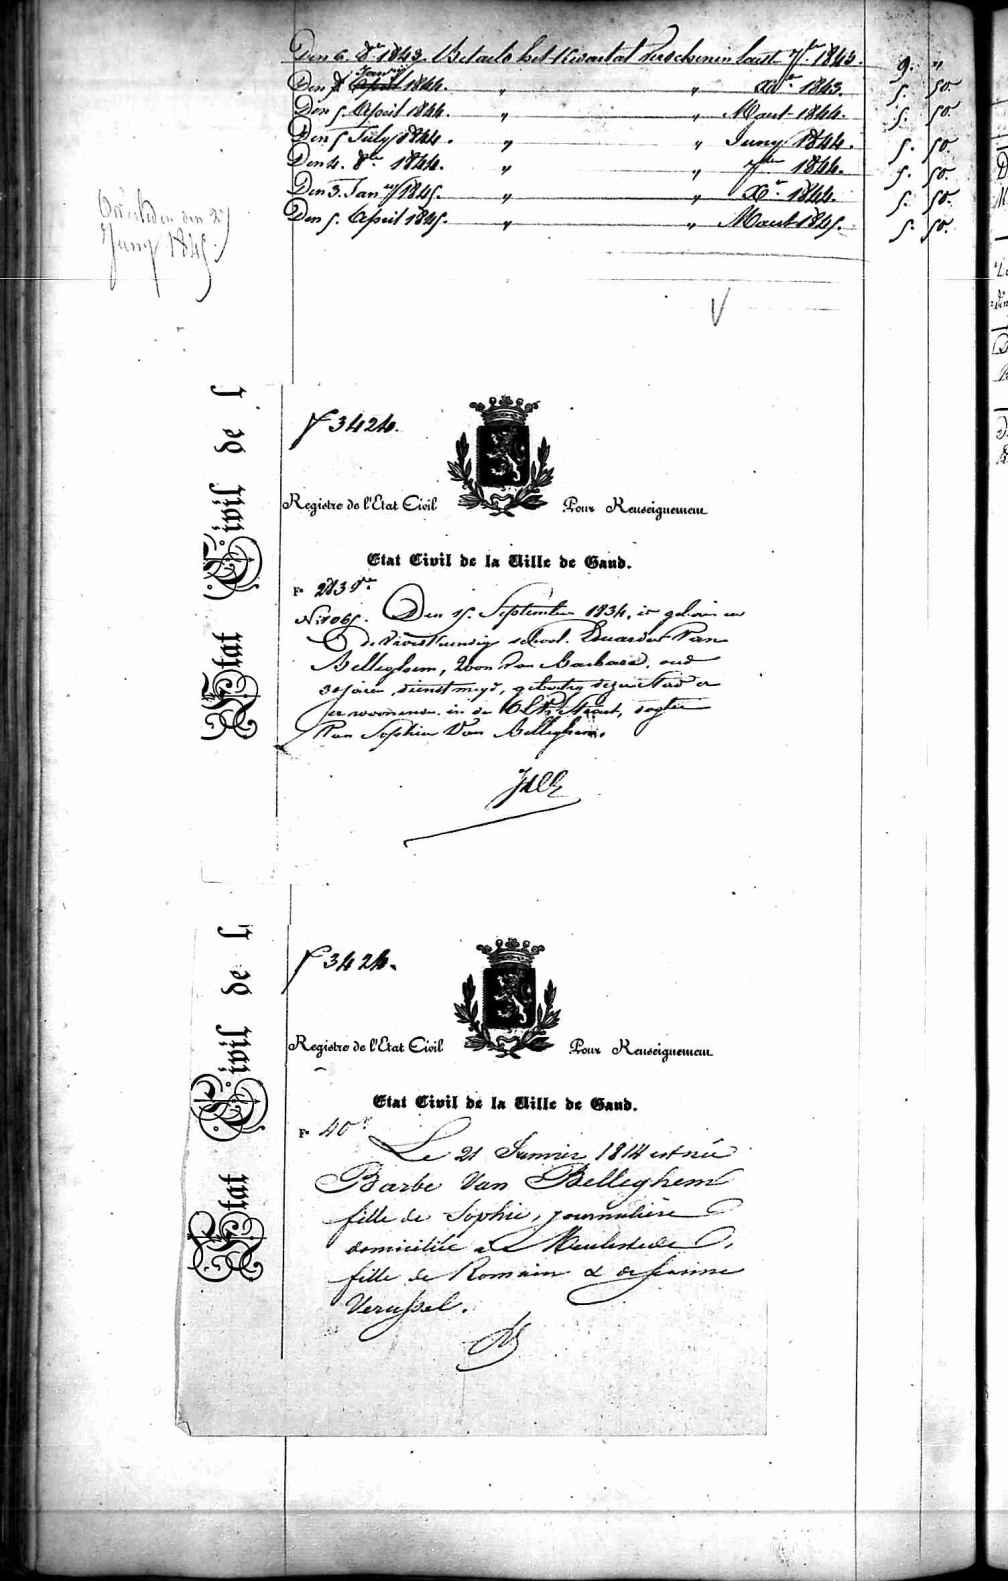 Den 6. 8re 1843. Betaelt het Kwartael verschenen laest 7re 1843. 9. "
Den January 1844. " " Xre 1843. 5. 50.
Den 5. April 1844. " " Maert 1844. 5. 50.
Den 5 July 1844. " " Juny 1844. 5. 50.
Den 4. 8re 1844. " " 7re 1844. 5. 50.
Den 3. Jany 1845. " " Xre 1844. 5. 50.
Den 5. April 1845. " " Maert 1845. 5. 50.
Overleden den
Juny 1845.
Etat Civil de l
3424.
Registre de l'Etat Civil Pour Renseignement
Etat Civil de la Ville de Gand.
Fo
No 1065. Den 15. September 1834, is geboren
Eduardus Van
Belleghem, Zoon van Barbara, oud
jaren, dienstmeyd, geboortig dezer stad
woonende in de straet, dogter
van Sophia Van Belleghem.
Etat Civil de l
3424.
Registre de l'Etat Civil Pour Renseignement
Etat Civil de la Ville de Gand.
Fo 40
Le 21 Janvier 1814 est née
Barbe Van Belleghem
fille de Sophie, journalière
domiciliée à Meulestede,
fille de Romain & de Jeanne